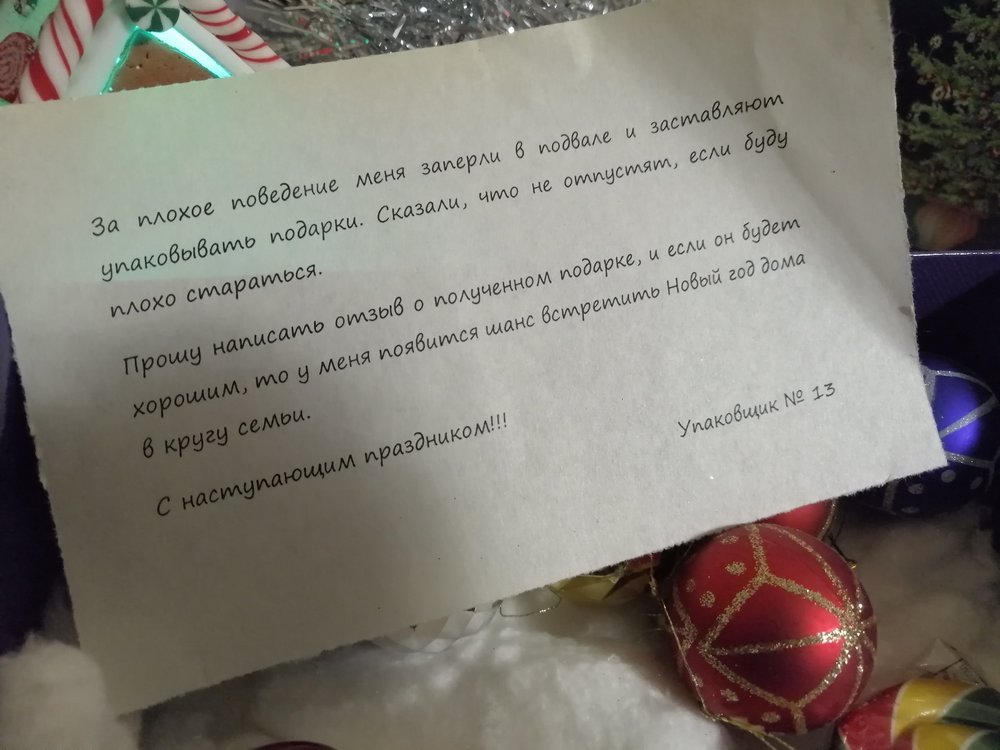 За плохое поведение меня заперли в подвале и заставляют
упаковывать подарки. Сказали, что не отпустят, если буду
плохо стараться.
Прошу написать отзыв о полученном подарке, и если он будет
хорошим, то у меня появится шанс встретить Новый год дома
в кругу семьи.
С наступающим праздником!!!
Упаковщик № 13